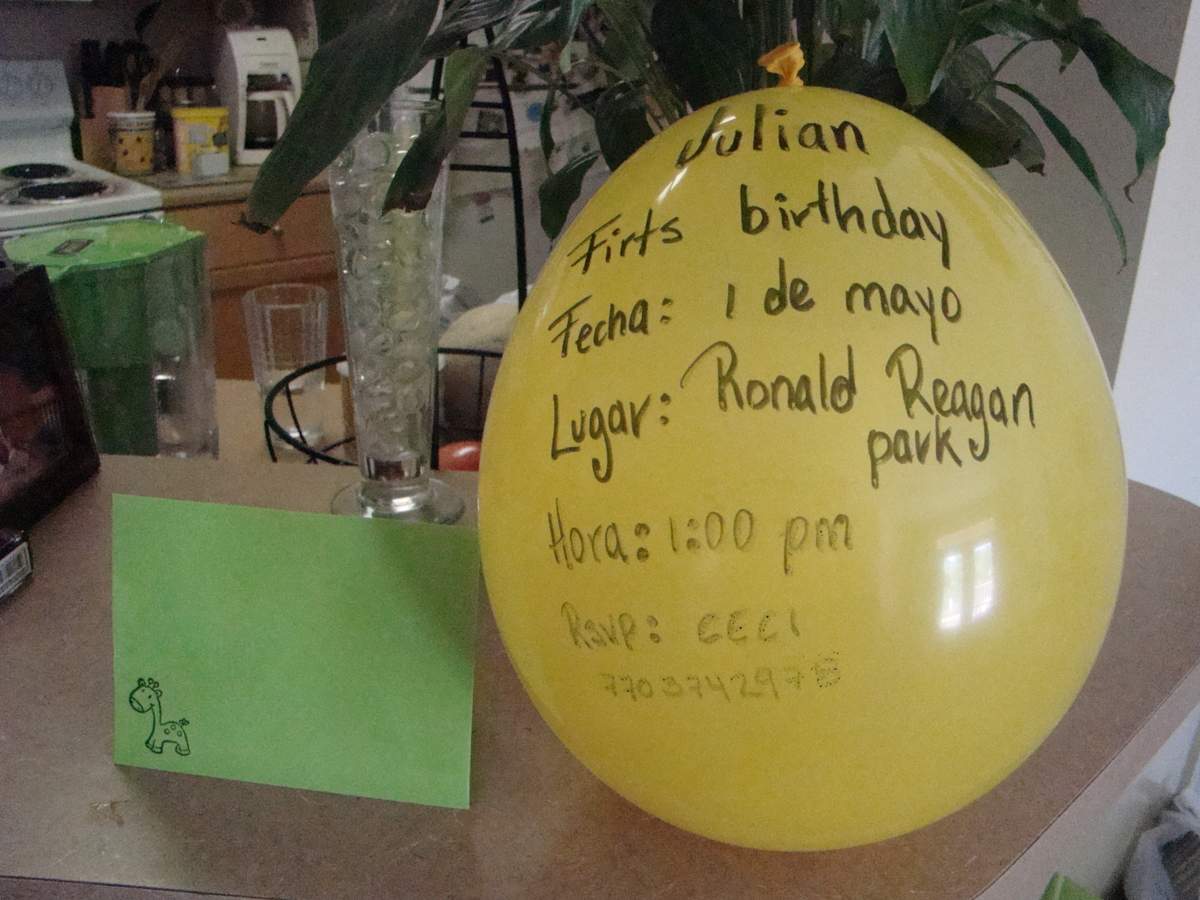 Julian
Firts birthday
Fecha: 1 de mayo
Lugar: Ronald Reagan
park
Hora: 1:00 pm
Rsvp: CECI
7703742978